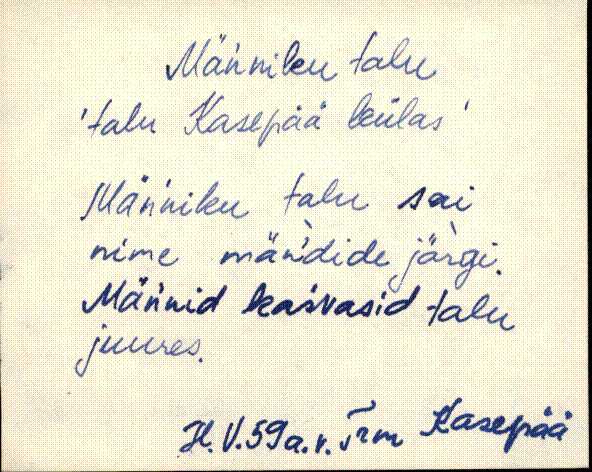 Männiku talu
'talu Kasepää külas'
Männiku talu sai
nime mändide järgi.
Männid kasvasid talu
juures.
H. V. 59 a. v. Trm Kasepää